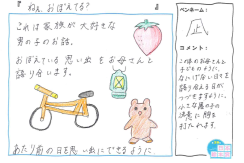 ねえ、おぼえてる?
これは家族が大好きな
男の子のお話。
おぼえている思い出をお母さんと
語り合います。
あたり前の日を思い出にできるように
ペンネーム:
正
コメント:
この本のお母さんと
子どものように、
なにげない日々を
語り合える日が
つづきますように。
小さな男の子の
決意に胸を
打たれます。